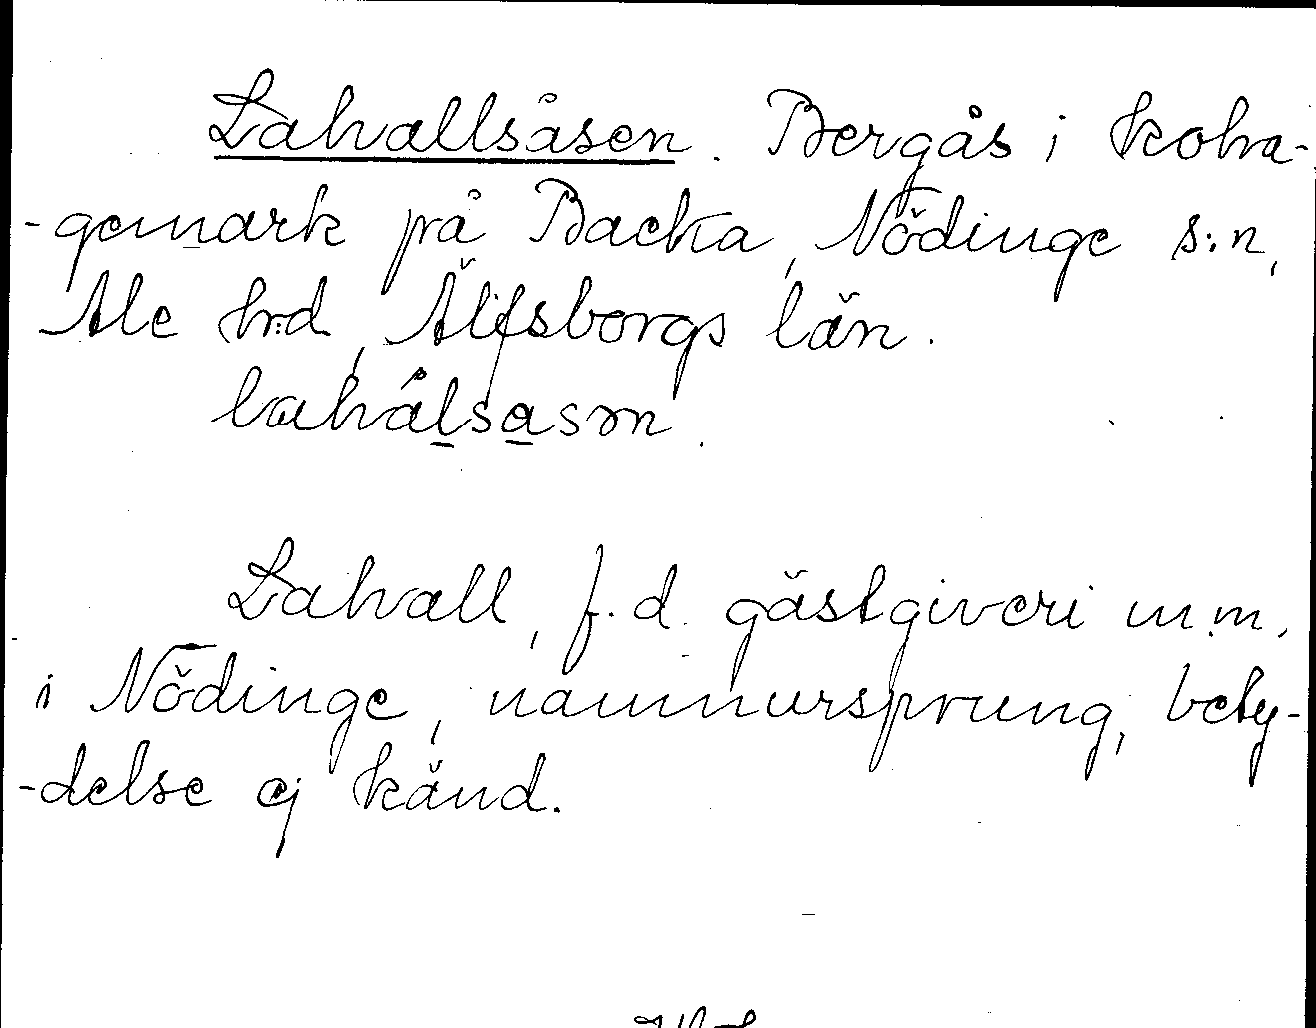 Lahallsåsen. Bergås i koha-
-gemark på Backa, Nödinge s:n,
Ale hrd, Älfsborgs län.
lahålsasən.
Lahall, f.d. gästgiveri m.m.
i Nödinge, namnursprung, bety-
-delse ej känd.